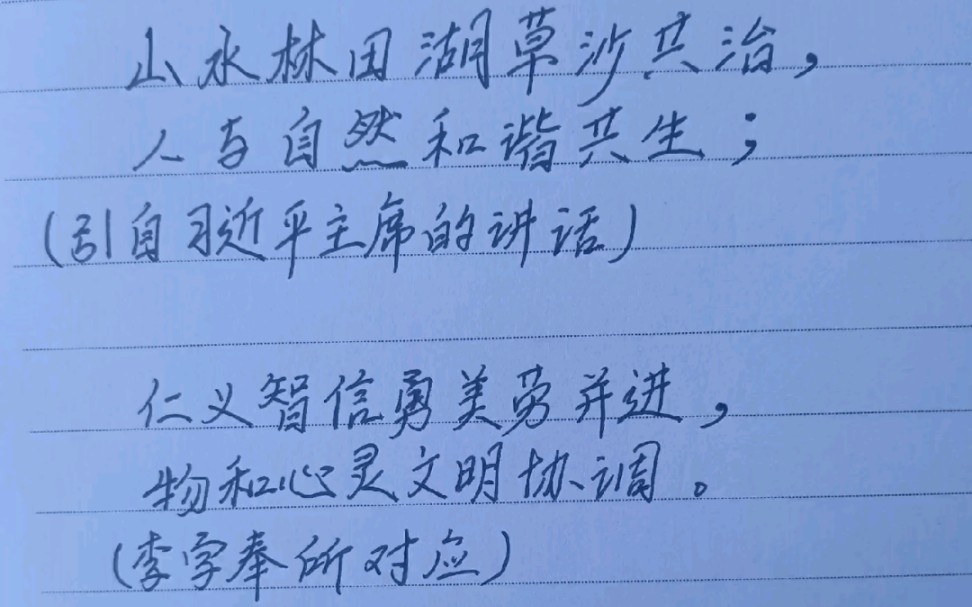 山水林田湖草沙共治，
人与自然和谐共生；
(引自习近平主席的讲话)
仁义智信勇美劳并进，
物和心灵文明协调。
(李字奉所对应)